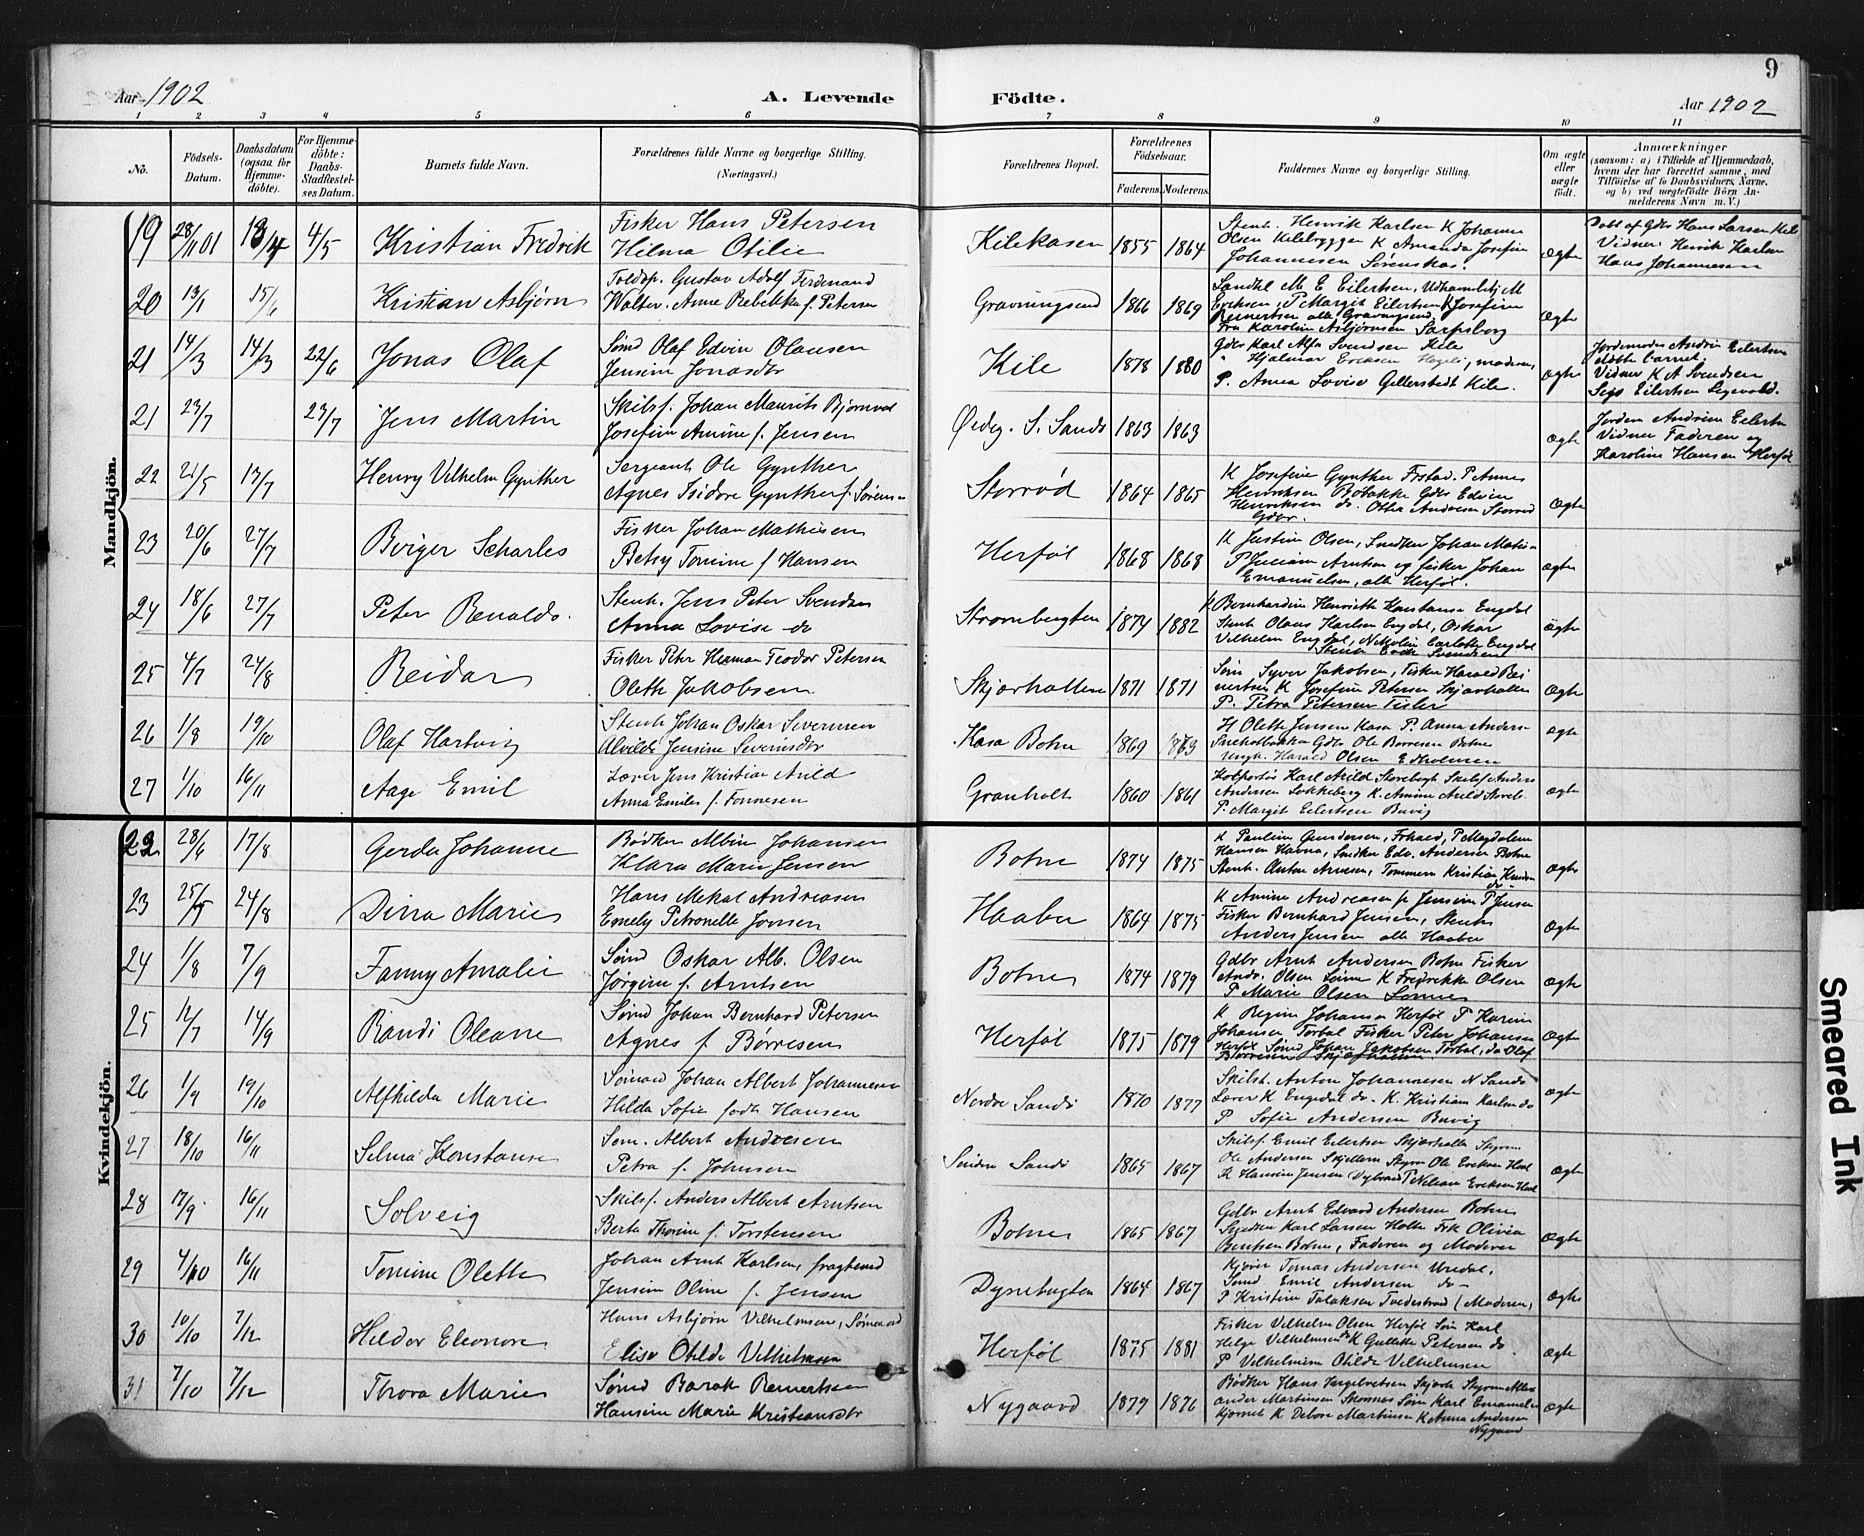 9
Aar 1902
A. Levende Födte.
Aar 1902
1 2 3 4 5 6 7 8 9 10 11
No.
Födsels-Datum.
Daabsdatum (ogsaa for Hjemmedöbte).
For Hjemmedöbte: Daabs-Stadfæstelses Datum.
Barnets fulde Navn.
Forældrenes fulde Navne og borgerlige Stilling.
(Næringsvei.)
Forældrenes Bopæl.
Forældrenes Födselsaar.
Faderens. Moderens.
Faddernes Navne og borgerlige Stilling.
Om ægte eller uægte födt.
Anmærkninger
(saasom: a) i Tilfælde af Hjemmedaab, hvem der har forrettet samme, med Tilföielse af to Daabsvidners Navne, og b) ved uægtefödte Börn Anmelderens Navn m. V.)
Mandkjön.
19 28/11 01 13/4 4/5 Kristian Fredrik Fisker Hans Petersen
Hilma Otilie Kilekasen 1855 1864 Henrik Karlsen K Johanne
Olsen Kilebyggen K Amanda Josefine
Johannesen Sørenskas. ægte
Døbt af Gdbr Hans Larsen Kile
Vidner Henrik Karlsen
Hans Johannesen
20 13/1 15/6 Kristian Asbjørn Toldop. Gustav Adolf Ferdinand
Walter. Anne Rebekka f. Petersen Gravningsund 1866 1869 Sandhl M. E. Eilertsen, Udhavnsbetj M
Eriksen, P Margit Eilertsen K Josefine
Reinertsen alle Gravningsund
Fru Karoline Asbjørnsen Sarpsborg ægte
21 14/3 14/3 22/6 Jonas Olaf Sømd Olaf Edvin Olausen
Jensine Jonasdtr Kile 1878 1880 Gdbr Karl Alfr Svendsen Kile
" Hjalmar Eriksen moderen,
P. Anna Lovise Gellerstedt Kile. ægte
Jordemoder Andrine Eilertsen
døbte barnet.
Vidner K A Svendsen
21 23/7 23/7 Jens Martin Skibsf. Johan Maurits Bjørnval
Josefine Amine f. Jensen Ødeg. S. Sandø 1863 1863 ægte
Jordm Andrine Eilertsen
Vidner Faderen og
Karoline Hansen Herføl
22 21/5 13/7 Henry Vilhelm Gynther Sergeant Ole Gynther
Agnes Isidore Gynther f. Sørensen Storrød 1864 1865 K Josefine Gynther Frstad. P Annes
Henriksen Bøbakke Gdbr Edvin
Henriksen do. Otto Andersen Storrød
Gdbr. ægte
23 20/6 27/7 Birger Scharles Fisker Johan Mathisen
Betsy Tomine f Hansen Herføl 1868 1868 K Justine Olsen, Snedker Johan
Arntsen og fisker Johan
Emanuelsen, alle Herføl. ægte
24 18/6 27/7 Peter Renaldo. Stenh. Jens Peter Svendsen
Anna Lovise do Strømbugten 1874 1882 K Bernhardine Henriette Konstanse Engdal
Stenh Olaus Karlsen Engdal, Oskar
Vilhelm Engdal, Nikoline Carlotte Engdal
Stenh Svendsen ægte
25 4/7 24/8 Reidar Fisker Peter Herman Teodor Petersen
Olette Jakobsen Skjærhallen 1871 1871 Søm Syver Jakobsen, Fisker Harald Reinertsen K Josefine Petersen Skjærhallen
P. Petra Petersen Fisker ægte
26 1/8 19/10 Olaf Hartvig Stenh Johan Oskar Severinsen
Alvilde Jensine Severinsdtr Kasa Bohne 1869 1863 H Olette Jensen Kasa P. Anna Anders
Gdbr Ole Børresen Bohne
Ungk. Harald Olsen Edholmen ægte
27 1/10 16/11 Aage Emil Lærer Jens Kristian Arild
Anna Emilie f. Fonnesen Granholt 1860 1861 Kolportør Karl Arild Storebugt Skibsf Anders
Andersen Løkkeberg K. Amine Arild Storeb.
P. Margit Eilertsen Buvig ægte
Kvindekjön.
22 28/6 17/8 Gerda Johanne Bødker Albin Johansen
Klara Marie Jensen Bohne 1874 1875 K Pauline Gundersen, Frhald, P Magdalene
Hansen Havna, Snedker Edv. Andersen Bohne
Stenh. Anton Arnesen, Tømmerm Kristian Knudsen
do ægte
23 25/7 24/8 Dina Marie Hans Mekal Andreasen
Emely Petronelle Jonsen Haabu 1864 1875 K Amine Andreasen p Jensine P Jensen
Fisker Bernhard Jensen, Stenh
Anders Jensen alle Haabu ægte
24 1/8 7/9 Fanny Amalie Sømd Oskar Alb. Olsen
Jørgine f. Arntsen Bohne 1874 1879 Gdbr Arnt Andersen Bohne Fisker
Ando. Olsen K Fredrikke Olsen
P Marie Olsen ægte
25 12/7 14/9 Randi Oleane Sømd Johan Bernhard Petersen
Agnes f. Børresen Herføl 1875 1879 K Regine Johansen Herføl P Karine
Johansen Torbal Fisker Peter Johansen
Herføl Sømd Johan Jakobsen Torbal, do Olaf
Børresen Skjærhallen ægte
26 1/9 19/10 Alfhilda Marie Sømand Johan Albert Johannesen
Hilda Sofie født Hansen Nordre Sandø 1870 1877 Skibst. Anton Johannesen N Sandø
Lærer K Engedal do. K. Kristiane Karlsen do
P Sofie Andersen Buvig ægte
27 18/10 16/11 Selma Konstanse Søm. Albert Andresen
Petra f. Johnsen Søndre Sandø 1865 1867 Skibsf. Emil Eilertsen Skjærhallen Styrm
Ole Andersen Styrm Ole Eriksen
K Hansine Jensen P Eriksen ægte
28 17/9 16/11 Solveig Skibsf. Anders Albert Arntsen
Berte Thorine f. Torstensen Bohne 1865 1867 Gdbr Arnt Edvard Andersen Bohne
Karl Larsen Holte Frk Olivia
Berntsen Bohne, Faderen og Moderen ægte
29 4/10 16/11 Tomine Olette Johan Arnt Karlsen, fragtemd
Jensine Oline f. Jensen Dypebugten 1864 1867 Tomas Andersen Urdal,
Sømd Emil Andersen do
P Kristine Tolaksen Tvedestrand (Moderen) ægte
30 10/10 7/12 Hildor Eleonore Hans Asbjørn Vilhelmsen, Sømand
Elise Otilde Vilhelmsen Herføl 1875 1881 Fisker Vilhelm Olsen Herføl Søm Karl
Helge Vilhelmsen do K Gulette Petersen do
P Vilhelmine Otilde Vilhelmsen ægte
31 7/10 7/12 Thora Marie Sømd Barak Reinertsen
Hansine Marie Kristiansdtr Nygaard 1879 1876 Bødker Hans Ingebretsen Skjærh Styrm Alexander Martinsen Skomnes Søm Karl Emanuelsen
K Debora Martinsen K Anna Andersen
Nygaard ægte
Smeared Ink